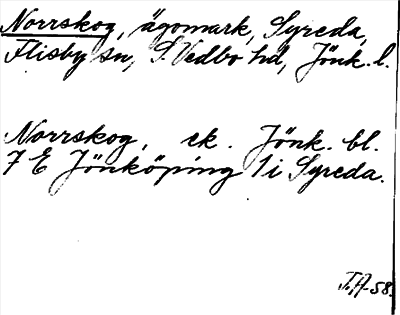 Norrskog, ägomark, Syreda,
Flisby sn, S. Vedbo hd, Jönk. l.
Norrskog, ek. Jönk. bl.
7 E Jönköping 1i Syreda.
T.A-58.